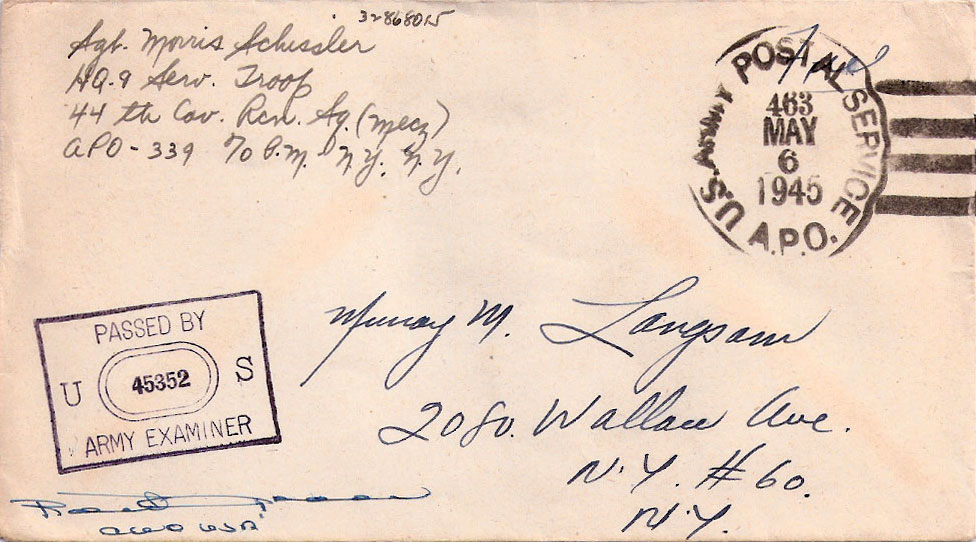 32868015
Sgt. Morris Schissler
HQ. 9 Serv. Troop
44 th Cav. Rcn. Sq. (mecz)
APO - 339 % P.M. N.Y. N.Y.
Free
U.S. ARMY POSTAL SERVICE
463
MAY
6
1945
A.P.O.
Murray M. Langsam
2080. Wallace Ave.
N.Y. #60.
N.Y.
PASSED BY
U 45352 S
ARMY EXAMINER
USA